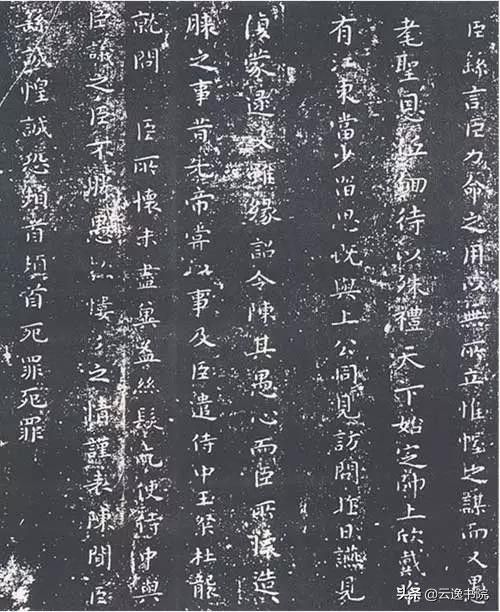 臣繇言臣力命之用以無所立惟幄之謀而又愚
耄聖恩低徊待以殊禮天下始定師上欣戴唯
有江東當少留思既與上公同見訪問昨日讌見
復蒙逮及雖緣詔令陳其愚心而臣所懷造
膝之事昔先帝嘗以事及臣遣侍中王粲杜襲
就問 臣所懷未盡冀益絲髮乞使侍中與
臣議之臣不勝愚款慺々之情謹表陳聞臣
繇誠惶誠恐頓首頓首死罪死罪
头条 @云逸书院